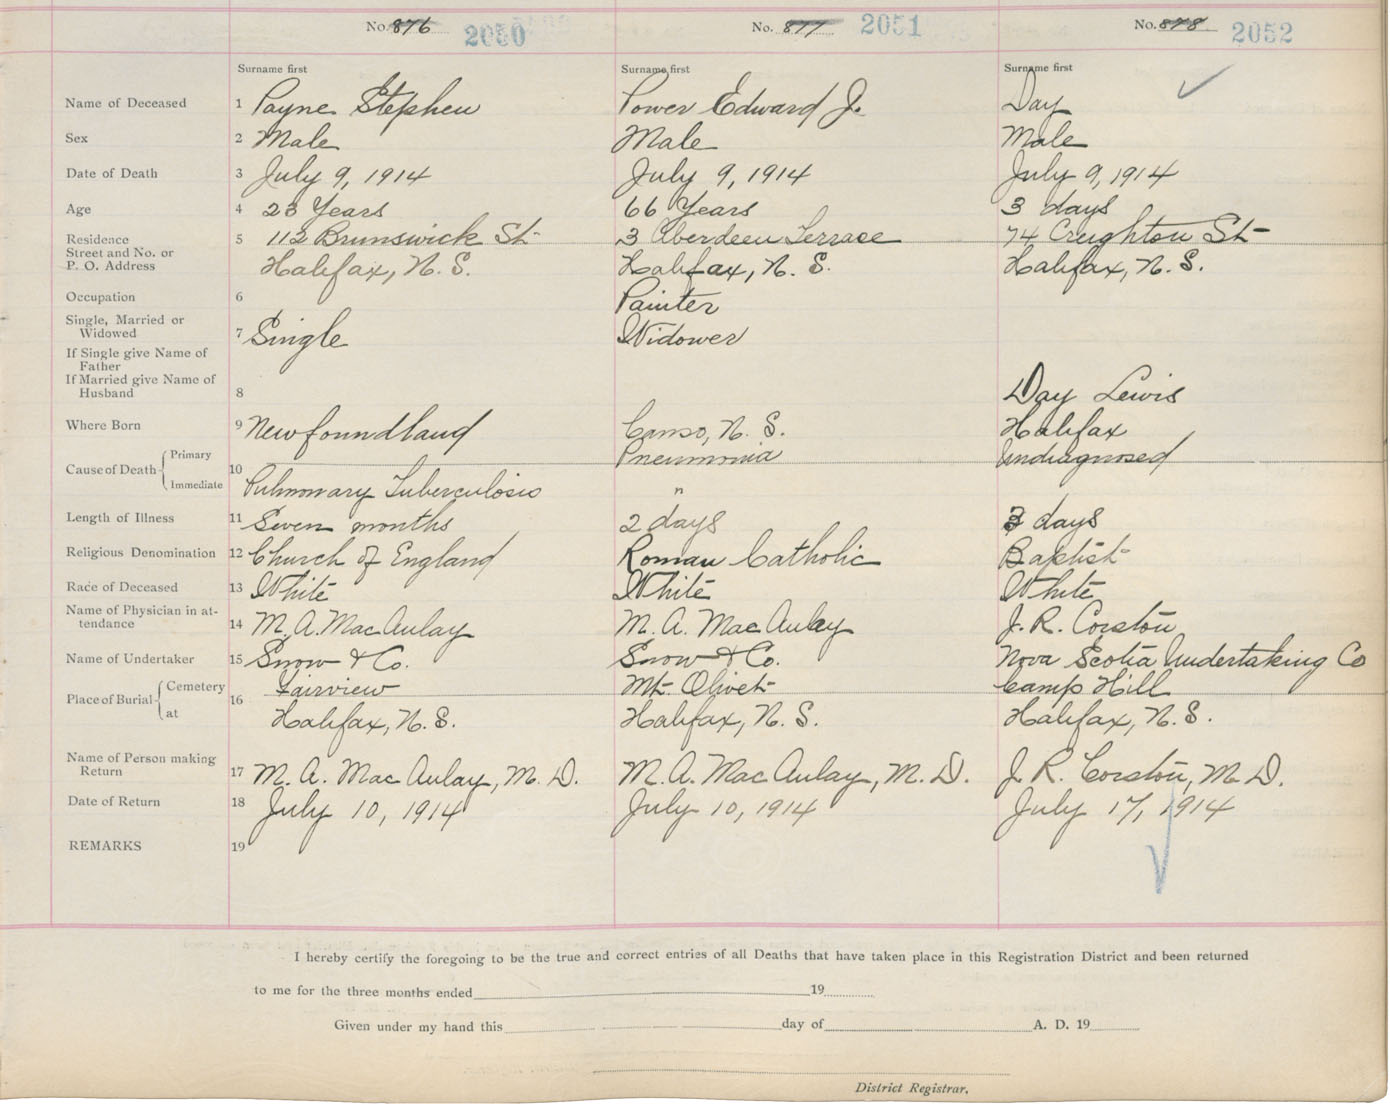 No. 876 2050 No. 877 2051 No. 878 2052
Surname first Surname first Surname first
Name of Deceased 1 Payne Stephen Power Edward J. Day
Sex 2 Male Male Male
Date of Death 3 July 9, 1914 July 9, 1914 July 9, 1914
Age 4 23 Years 66 Years 3 days
Residence 5 112 Brunswick St. 3 Aberdeen Terrace 74 Creighton St
Street and No. or
P. O. Address Halifax, N. S. Halifax, N. S. Halifax, N. S.
Occupation 6 Painter
Single, Married or
Widowed 7 Single Widower
If Single give Name of
Father
If Married give Name of
Husband 8 Day Lewis
Where Born 9 Newfoundland Canso, N. S. Halifax
Cause of Death Primary 10 Pneumonia Undiagnosed
Immediate Pulmonary Tuberculosis "
Length of Illness 11 Seven months 2 days 3 days
Religious Denomination 12 Church of England Roman Catholic Baptist
Race of Deceased 13 White White White
Name of Physician in at-
tendance 14 M. A. MacAulay M. A. MacAulay J. R. Corston
Name of Undertaker 15 Snow & Co. Snow & Co. Nova Scotia Undertaking Co
Place of Burial Cemetery 16 Fairview Mt. Olivet Camp Hill
at Halifax, N. S. Halifax, N. S. Halifax, N. S.
Name of Person making
Return 17 M. A. MacAulay, M. D. M. A. MacAulay, M. D. J. R. Corston, M. D.
Date of Return 18 July 10, 1914 July 10, 1914 July 17, 1914
REMARKS 19
I hereby certify the foregoing to be the true and correct entries of all Deaths that have taken place in this Registration District and been returned
to me for the three months ended 19
Given under my hand this day of A. D. 19
District Registrar.